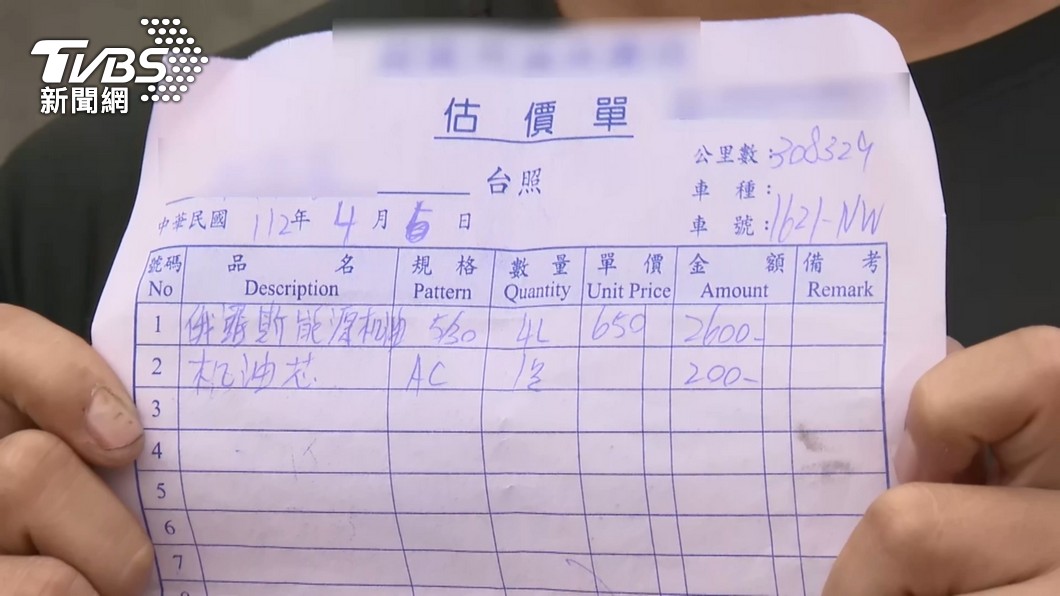 TVBS
新聞網
估價單
公里數：308329
台照
車種：
中華民國 112年 4月 5日
車號：1621-NW
號碼 品名 規格 數量 單價 金額 備考
No Description Pattern Quantity Unit Price Amount Remark
1 俄羅斯能源机油 5/30 4L 650 2600-
2 机油芯 AC 1 200-
3
4
5
6
7